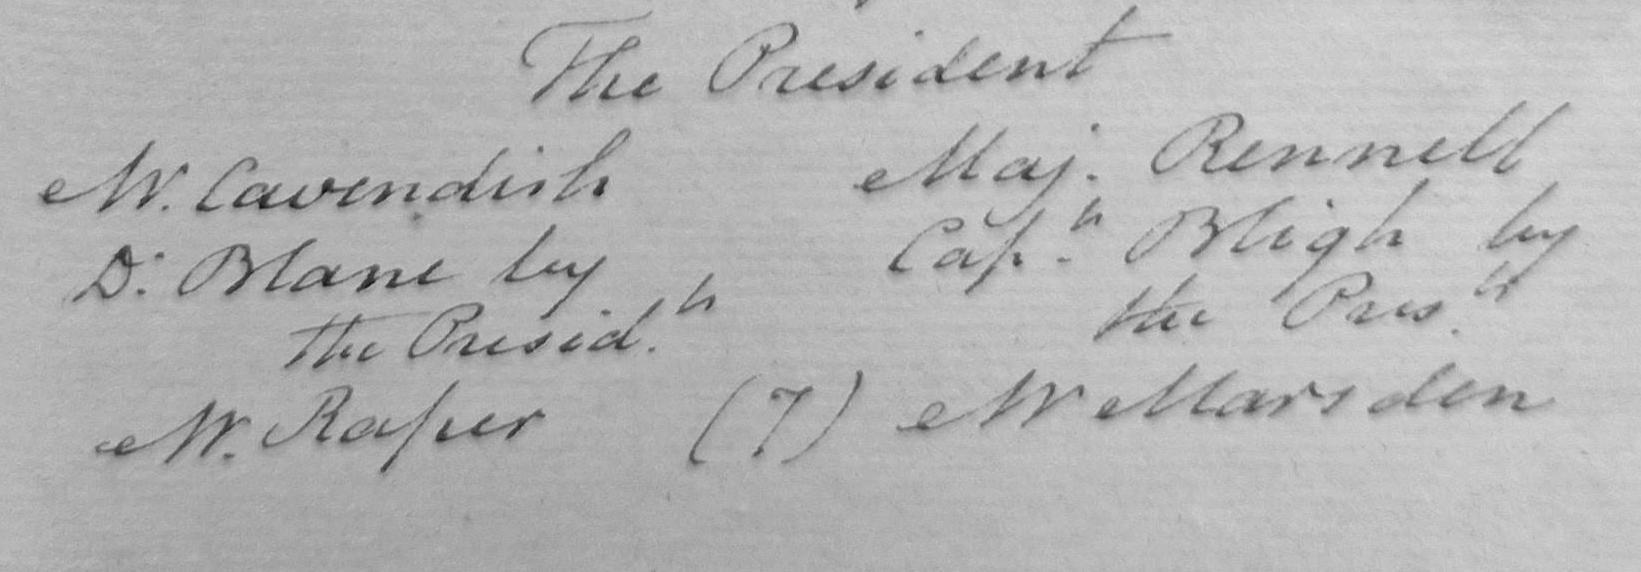 The President
Mr. Cavendish Maj. Rennell
Dr. Blane by Capn. Bligh by
the Presidt. the Prest.
Mr. Raper (7) Mr Marsden